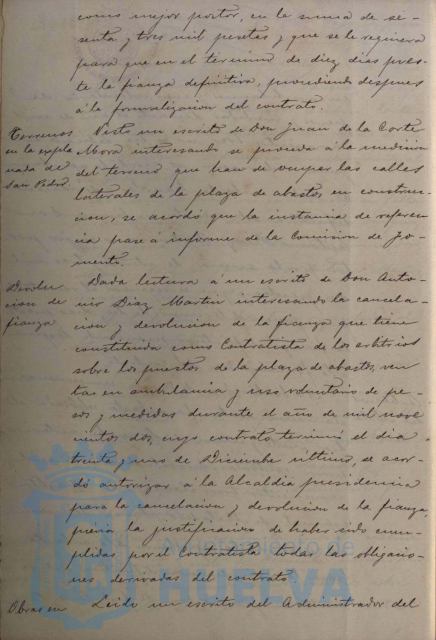 como mejor postor, en la suma de se-
senta y tres mil pesetas y que se le requiera
para que en el término de diez dias pres-
te la fianza definitiva, procediendo despues
á la formalizacion del contrato.
Terrenos
en la expla
nada de
San Pedro
Visto un escrito de Don Juan de la Corte
Mora interesando se proceda á la medicion
del terreno que han de ocupar las calles
laterales de la plaza de abastos en construc-
cion, se acordó que la instancia de referen-
cia pase á informe de la Comision de Fo-
mento.
Devolu
cion de
fianza
Dada lectura á un escrito de Don Anto-
nio Diaz Martin interesando la cancela-
cion y devolucion de la fianza que tiene
constituida como Contratista de los arbitrios
sobre los puestos de la plaza de abastos, ven
tas en ambulancia y uso voluntario de pe-
sos y medidas durante el año de mil nove
cientos dos, cuyo contrato terminó el dia
treinta y uno de Diciembre último, se acor-
dó autorizar á la Alcaldia presidencia
para la cancelacion y devolucion de la fianza,
prévia la justificacion de haber sido cum-
plidas por el Contratista todas las obligacio-
nes derivadas del contrato
Obras en
Leido un escrito del Administrador del
Ayuntamiento de
HUELVA